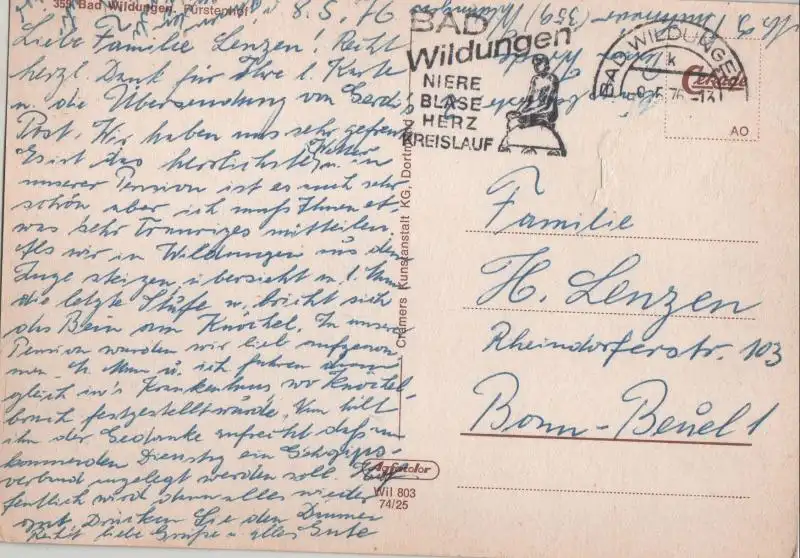 359 Bad Wildungen. Fürstenhof
8.5.76
Liebe Familie Lenzen! Recht
herzl. Dank für Ihre l. Karte
u. die Übersendung von Gerdi's
Post. Wir haben uns sehr gefreut
Es ist das herrlichste Wetter u. in
unserer Pension ist es auch sehr
schön aber ich muß Ihnen et-
was sehr Trauriges mitteilen.
Als wir in Wildungen aus dem
Zuge steigen, übersieht m. l. Mann
die letzte Stufe u. bricht sich
das Bein am Knöchel. In unserer
Pension wurden wir lieb aufgenom
men m. Mann u. ich fuhren dann
gleich in's Krankenhaus, wo Knöchel-
bruch festgestellt wurde. Nun hält
ihn der Gedanke aufrecht daß am
kommenden Dienstag ein Gehgips-
verband angelegt werden soll. Hof
fentlich wird dann alles wieder
gut. Drücken Sie den Daumen
Recht liebe Grüße u. alles Gute
BAD
Wildungen
NIERE
BLASE
HERZ
KREISLAUF
BAD WILDUNGEN
k
-9.-5.76.-13
AO
Cramers Kunstanstalt KG, Dortmund
Agfacolor
Wil 803
74/25
Familie
H. Lenzen
Rheindorferstr. 103
Bonn-Beuel 1